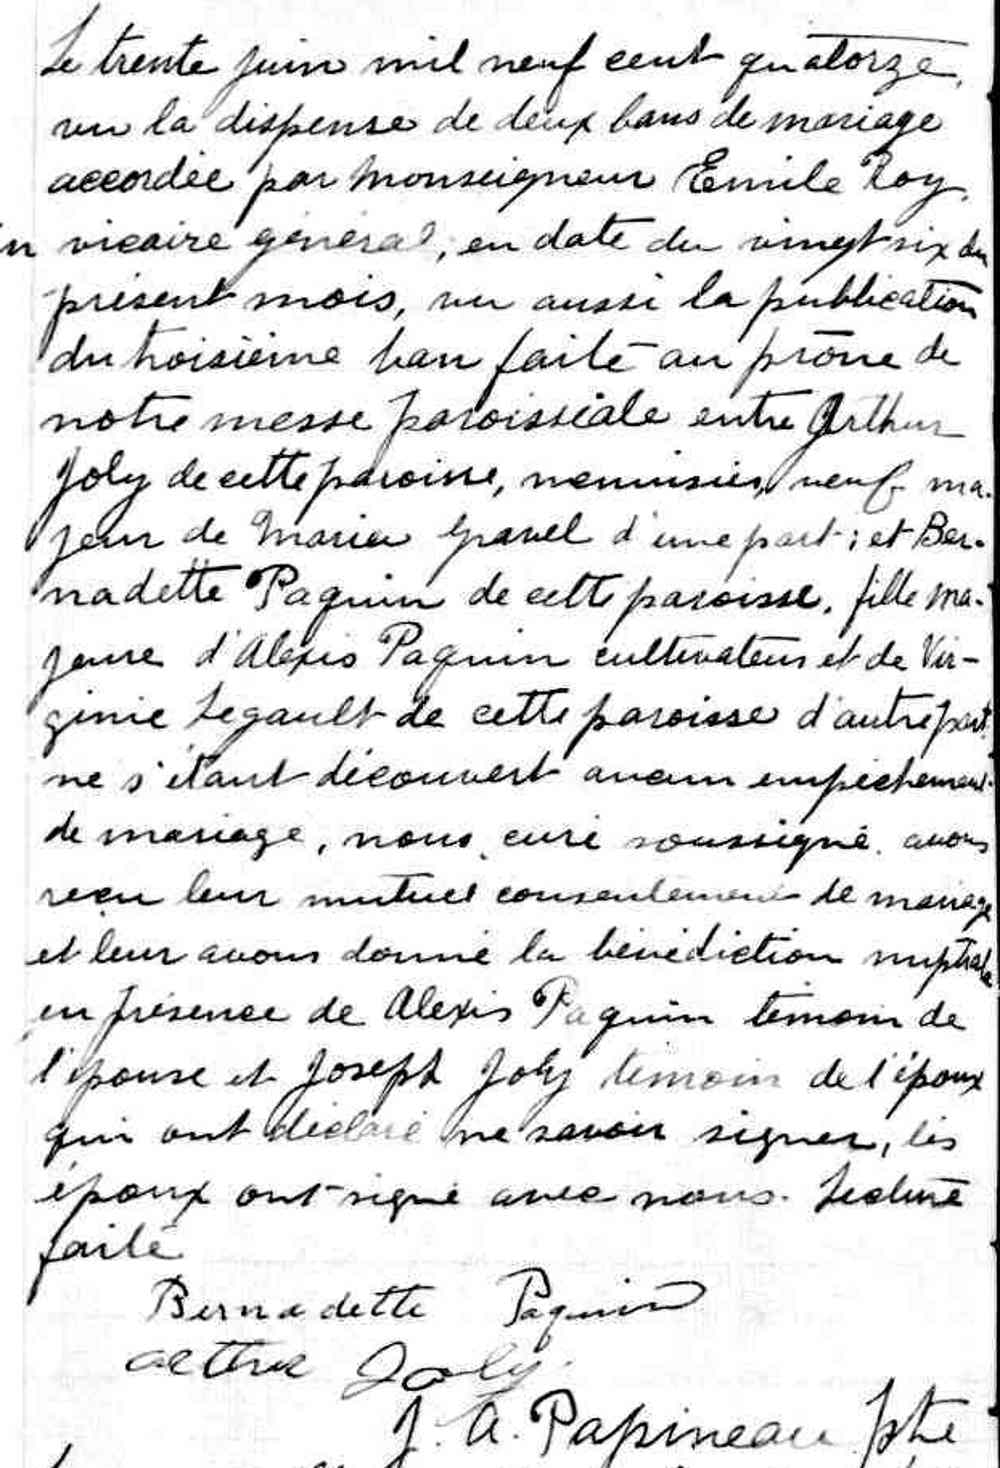 Le trente juin mil neuf cent quatorze,
vu la dispense de deux bans de mariage
accordée par Monseigneur Emile Roy,
vicaire général, en date du vingt six du
présent mois, vu aussi la publication
du troisième ban faite au prône de
notre messe paroissiale entre Arthur
Joly de cette paroisse, menuisier, veuf ma-
jeur de Maria Gravel d'une part; et Ber-
nadette Paquin de cette paroisse, fille ma-
jeure d'Alexis Paquin cultivateur et de Vir-
ginie Legault de cette paroisse d'autre part
ne s'étant découvert aucun empêchement
de mariage, nous, curé soussigné, avons
reçu leur mutuel consentement de mariage
et leur avons donné la bénédiction nuptiale
en présence de Alexis Paquin témoin de
l'épouse et Joseph Joly témoin de l'époux
qui ont déclaré ne savoir signer, les
époux ont signé avec nous. Lecture
faite
Bernadette Paquin
Joly
J. A. Papineau ptre